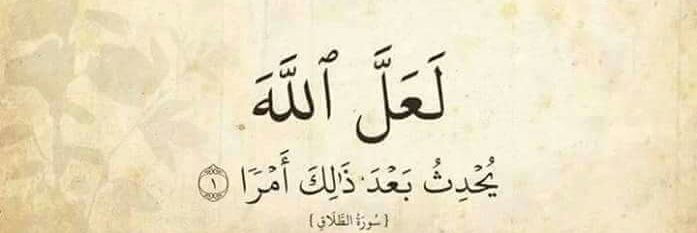 لَعَلَّ ٱللَّهَ
يُحْدِثُ بَعْدَ ذَٰلِكَ أَمْرًا ١
{ سُورَةُ الطَّلَاقِ }